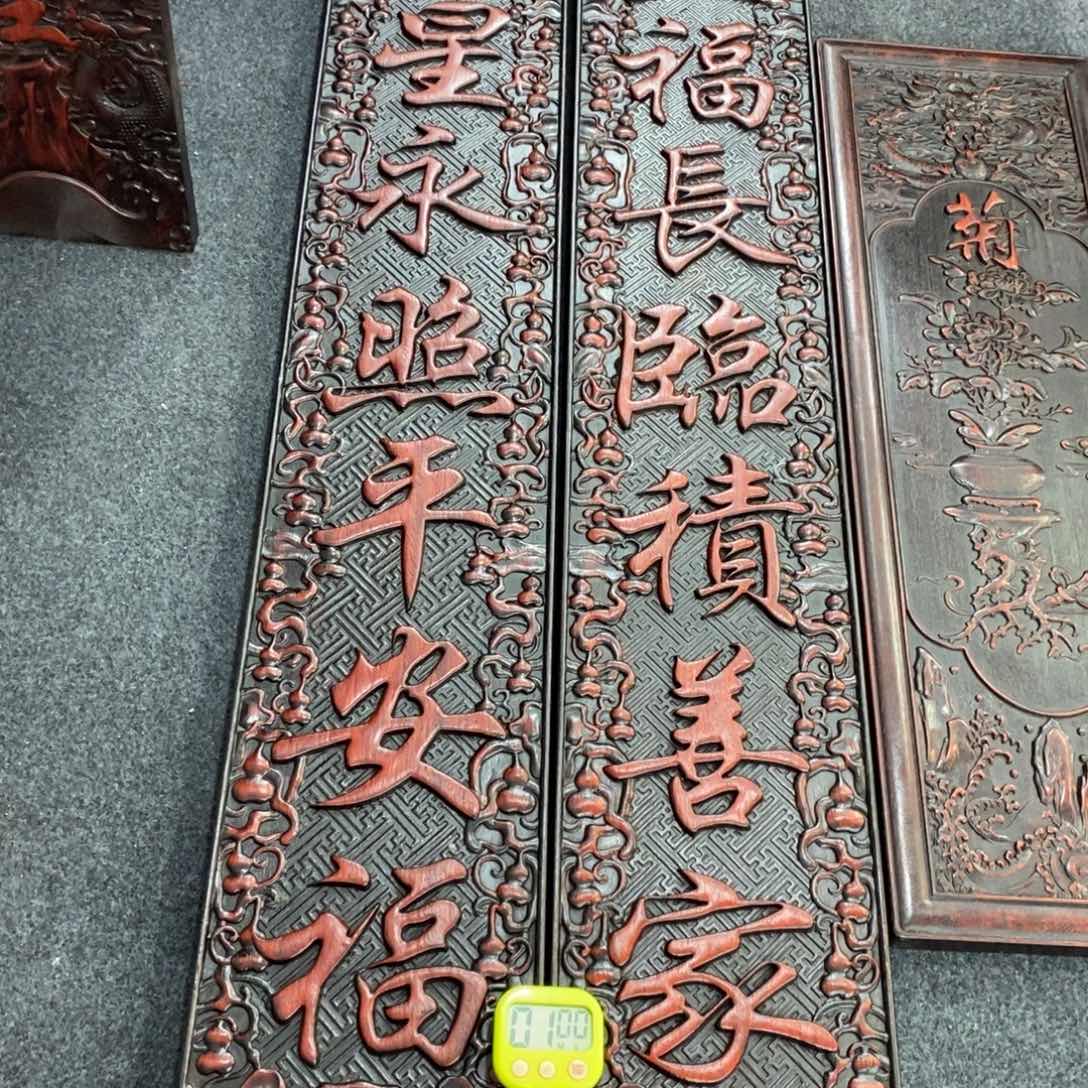 福長臨積善家
星永照平安福
菊
01:00